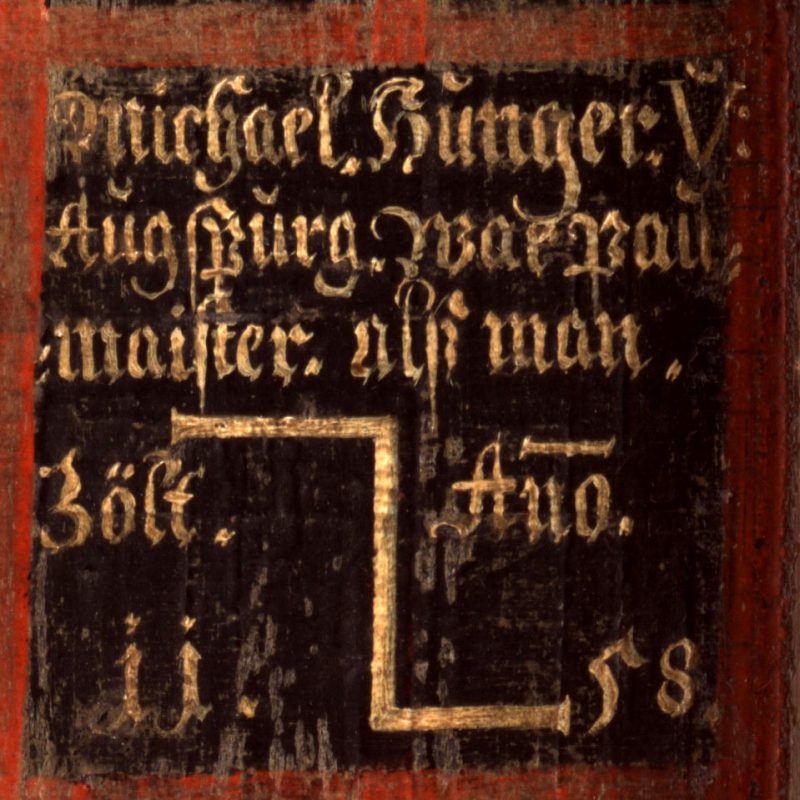 Michael. Hŭnger. V̆:
Aŭgspŭrg. war paŭ⸗
⸗maister. alſs man.
Zölt. Año.
ii. 58.